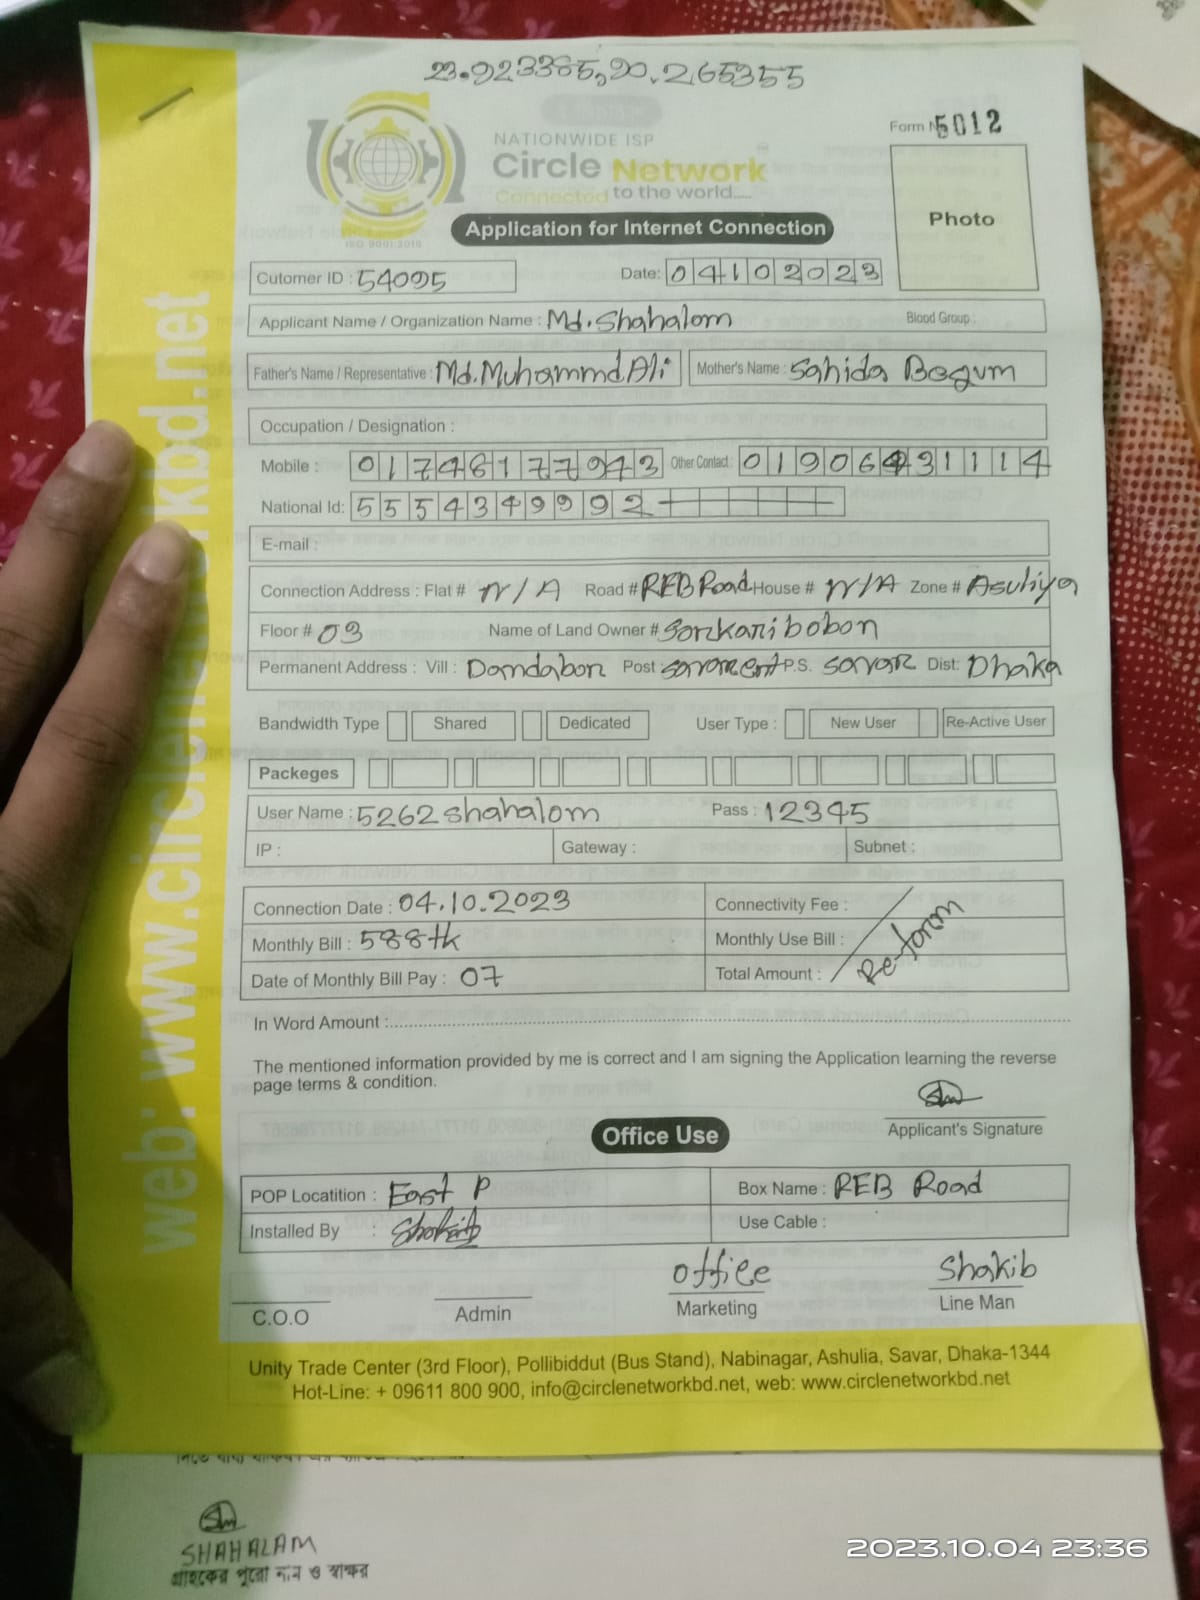 23.923385,90.265355
Form N 5012
NATIONWIDE ISP
Circle Network
Connected to the world.....
ISO 9001:2015
Application for Internet Connection
Photo
Cutomer ID : 54095
Date: 04102023
Applicant Name / Organization Name : Md. Shahalom
Blood Group :
Father's Name / Representative : Md. Muhammd. Ali
Mother's Name : Sahida Begum
Occupation / Designation :
Mobile : 01748177943
Other Contact: 01906431114
National Id: 5554349992
E-mail :
Connection Address : Flat # N/A Road # REB Road House # N/A Zone # Asuliya
Floor # 03 Name of Land Owner # Sorkari bobon
Permanent Address : Vill : Dandabor Post P.S. savar Dist: Dhaka
Bandwidth Type Shared Dedicated User Type : New User Re-Active User
Packeges
User Name : 5262shahalom Pass : 12345
IP : Gateway : Subnet :
Connection Date : 04.10.2023 Connectivity Fee :
Monthly Bill : 588tk Monthly Use Bill :
Date of Monthly Bill Pay : 07 Total Amount :
Re-form
In Word Amount :
The mentioned information provided by me is correct and I am signing the Application learning the reverse
page terms & condition.
Applicant's Signature
Office Use
POP Locatition : East P Box Name : REB Road
Installed By : Shakib Use Cable :
office Shakib
C.O.O Admin Marketing Line Man
Unity Trade Center (3rd Floor), Pollibiddut (Bus Stand), Nabinagar, Ashulia, Savar, Dhaka-1344
Hot-Line: + 09611 800 900, info@circlenetworkbd.net, web: www.circlenetworkbd.net
web: www.circlenetworkbd.net
SHAHALAM
গ্রাহকের পুরো নাম ও স্বাক্ষর
2023.10.04 23:36